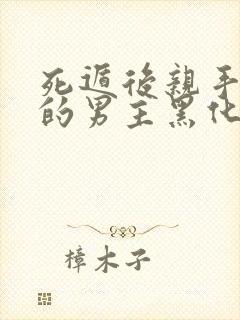 死遁後親手
的男主黑化
樟木子